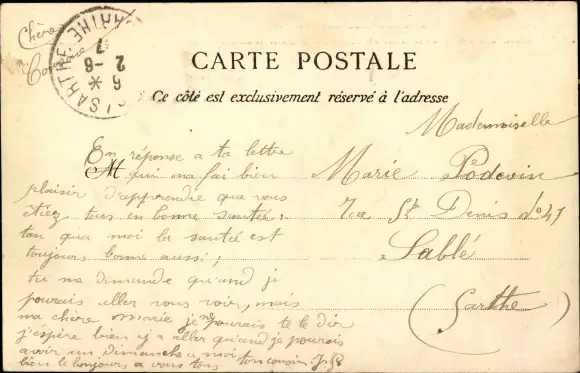 Chère
Cousine
SARTHE
CARTE POSTALE
Ce côté est exclusivement réservé à l'adresse
Mademoiselle
Marie Podevin
St Denis
Sablé
(Sarthe)
En réponse a ta lettre
M qui ma fai bien
plaisir d'apprendre que vous
étiez tous en bonne santée,
tan qua moi la santé est
toujours bonne aussi,
tu me demande qu'and je
pourais aller vous voir, mais
ma chère Marie je ne pourais te le dir
j'éspère bien y a aller qu'and je pourais
avoir un Dimanche a moi ton cousin. J
bien le bonjour a vous tous